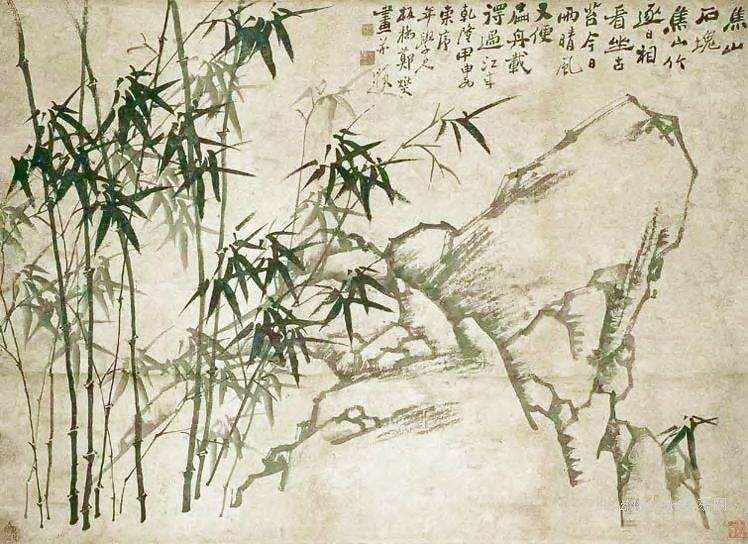 焦山
石塊
焦山竹
逐日相
看坐古
苔今日
雨晴風
又便
扁舟載
得過江來
乾隆甲申
板橋鄭燮
畫并題